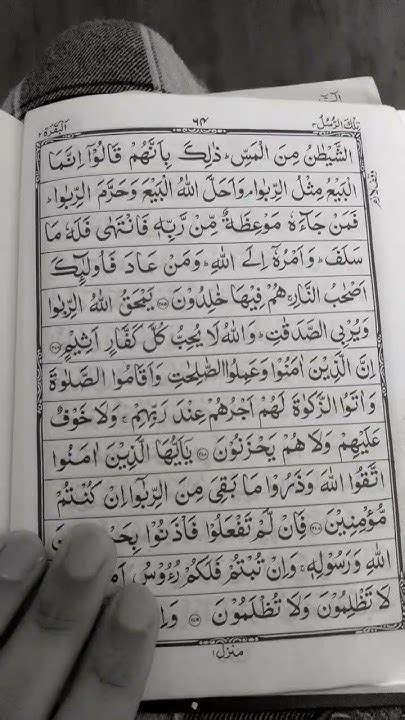 تِلْكَ الرُّسُلُ ٣ ٦٤ اَلْبَقَرَة ٢
الشَّيْطٰنُ مِنَ الْمَسِّ ؕ ذٰلِكَ بِاَنَّهُمْ قَالُوْۤا اِنَّمَا
الْبَيْعُ مِثْلُ الرِّبٰوا ۘ وَاَحَلَّ اللّٰهُ الْبَيْعَ وَحَرَّمَ الرِّبٰوا ؕ
فَمَنْ جَآءَهٗ مَوْعِظَةٌ مِّنْ رَّبِّهٖ فَانْتَهٰى فَلَهٗ مَا
سَلَفَ ؕ وَاَمْرُهٗۤ اِلَى اللّٰهِ ؕ وَمَنْ عَادَ فَاُولٰٓئِكَ
اَصْحٰبُ النَّارِ ۚ هُمْ فِيْهَا خٰلِدُوْنَ ﴿۲۷۵﴾ يَمْحَقُ اللّٰهُ الرِّبٰوا
وَيُرْبِى الصَّدَقٰتِ ؕ وَاللّٰهُ لَا يُحِبُّ كُلَّ كَفَّارٍ اَثِيْمٍ ﴿۲۷۶﴾
اِنَّ الَّذِيْنَ اٰمَنُوْا وَعَمِلُوا الصّٰلِحٰتِ وَاَقَامُوا الصَّلٰوةَ
وَاٰتَوُا الزَّكٰوةَ لَهُمْ اَجْرُهُمْ عِنْدَ رَبِّهِمْ ۚ وَلَا خَوْفٌ
عَلَيْهِمْ وَلَا هُمْ يَحْزَنُوْنَ ﴿۲۷۷﴾ يٰۤاَيُّهَا الَّذِيْنَ اٰمَنُوا
اتَّقُوا اللّٰهَ وَذَرُوْا مَا بَقِىَ مِنَ الرِّبٰۤوا اِنْ كُنْتُمْ
مُّؤْمِنِيْنَ ﴿۲۷۸﴾ فَاِنْ لَّمْ تَفْعَلُوْا فَاْذَنُوْا
اللّٰهِ وَرَسُوْلِهٖ ۚ وَاِنْ تُبْتُمْ فَلَكُمْ رُءُوْسُ
لَا تَظْلِمُوْنَ وَلَا تُظْلَمُوْنَ ﴿۲۷۹﴾
منزل ١